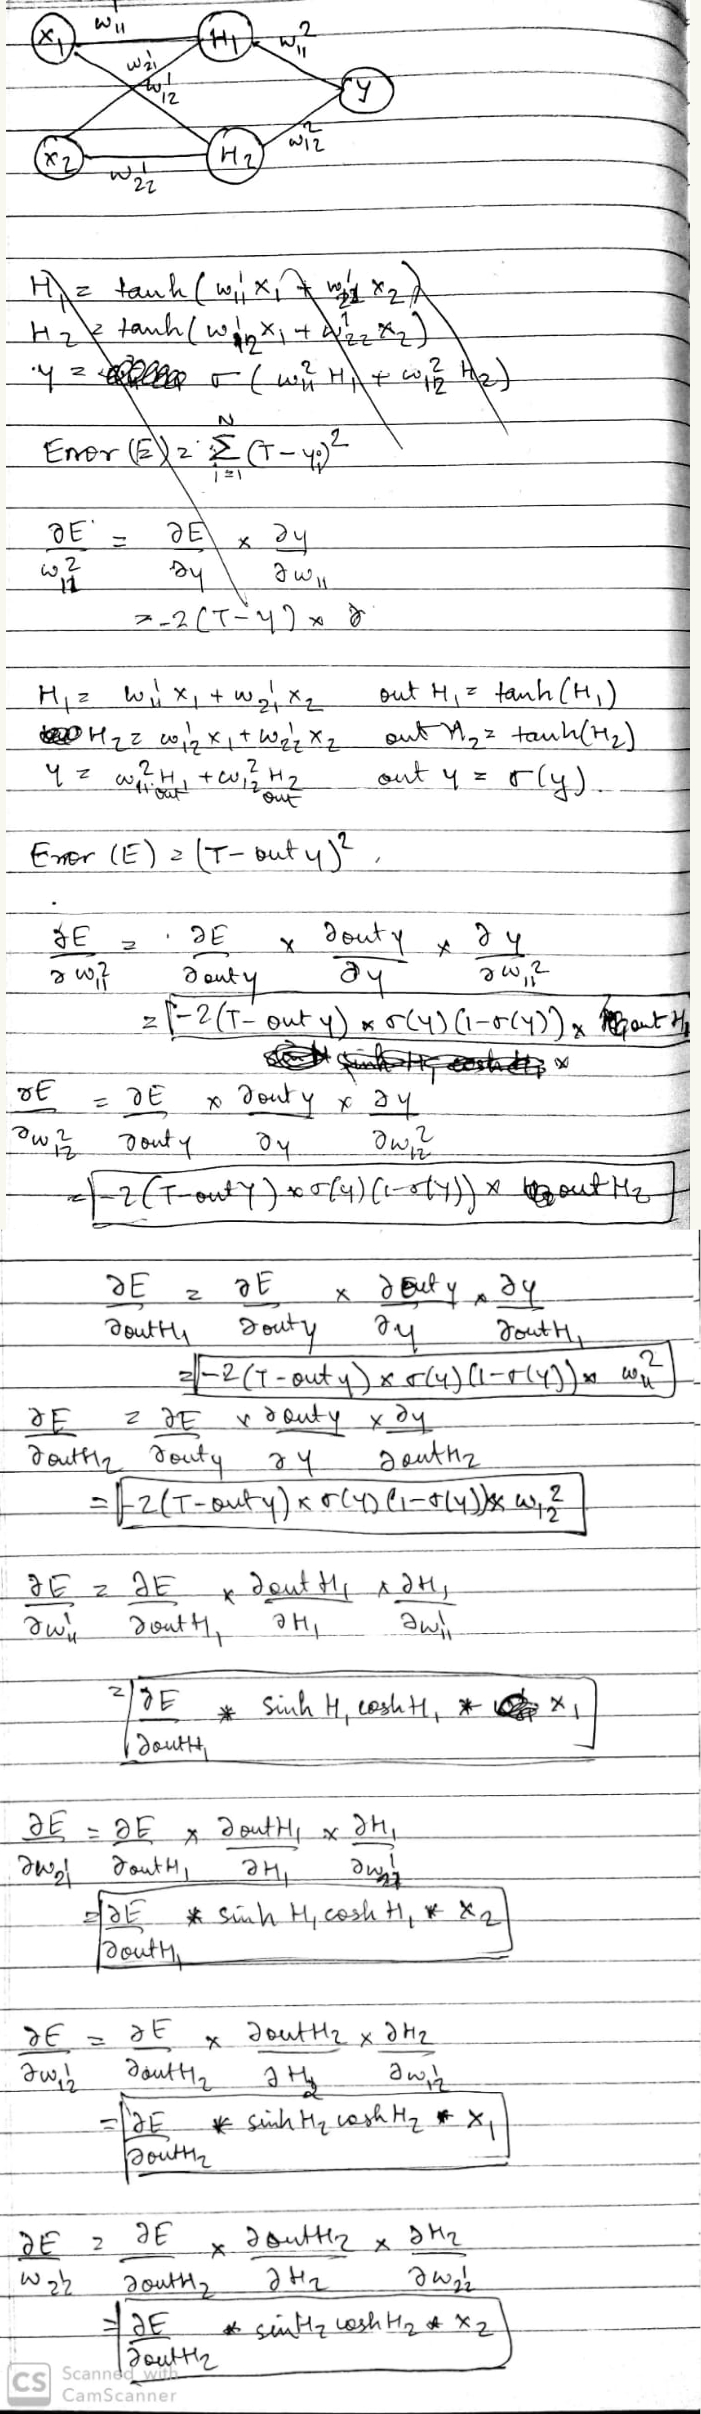 w¹₁₁
x₁
H₁
w²₁₁
w¹₂₁
w¹₁₂
y
x₂
w¹₂₂
H₂
w²₁₂
H₁ = tanh(w¹₁₁ x₁ + w¹₂₁ x₂)
H₂ = tanh(w¹₁₂ x₁ + w¹₂₂ x₂)
y = σ(w²₁₁ H₁ + w²₁₂ H₂)
Error (E) = Σᴺᵢ₌₁ (T - yᵢ)²
∂E/w²₁₁ = ∂E/∂y × ∂y/∂w₁₁
= -2(T-y) × ∂
H₁ = w¹₁₁ x₁ + w¹₂₁ x₂ out H₁ = tanh(H₁)
H₂ = w¹₁₂ x₁ + w¹₂₂ x₂ out H₂ = tanh(H₂)
y = w²₁₁ H₁ out + w²₁₂ H₂ out out y = σ(y).
Error (E) = (T - out y)²,
∂E/∂w²₁₁ = ∂E/∂out y × ∂out y/∂y × ∂y/∂w²₁₁
= -2(T - out y) × σ(y)(1-σ(y)) × out H₁
∂E/∂w²₁₂ = ∂E/∂out y × ∂out y/∂y × ∂y/∂w²₁₂
= -2(T-out y) × σ(y)(1-σ(y)) × out H₂
∂E/∂out H₁ = ∂E/∂out y × ∂out y/∂y × ∂y/∂out H₁
= -2(T-out y) × σ(y)(1-σ(y)) × w²₁₁
∂E/∂out H₂ = ∂E/∂out y × ∂out y/∂y × ∂y/∂out H₂
= -2(T-out y) × σ(y)(1-σ(y)) × w²₁₂
∂E/∂w¹₁₁ = ∂E/∂out H₁ × ∂out H₁/∂H₁ × ∂H₁/∂w¹₁₁
= ∂E/∂out H₁ * sinh H₁ cosh H₁ * x₁
∂E/∂w¹₂₁ = ∂E/∂out H₁ × ∂out H₁/∂H₁ × ∂H₁/∂w¹₂₁
= ∂E/∂out H₁ * sinh H₁ cosh H₁ * x₂
∂E/∂w¹₁₂ = ∂E/∂out H₂ × ∂out H₂/∂H₂ × ∂H₂/∂w¹₁₂
= ∂E/∂out H₂ * sinh H₂ cosh H₂ * x₁
∂E/w¹₂₂ = ∂E/∂out H₂ × ∂out H₂/∂H₂ × ∂H₂/∂w¹₂₂
= ∂E/∂out H₂ * sinH₂ cosh H₂ * x₂
CS Scanned with
CamScanner